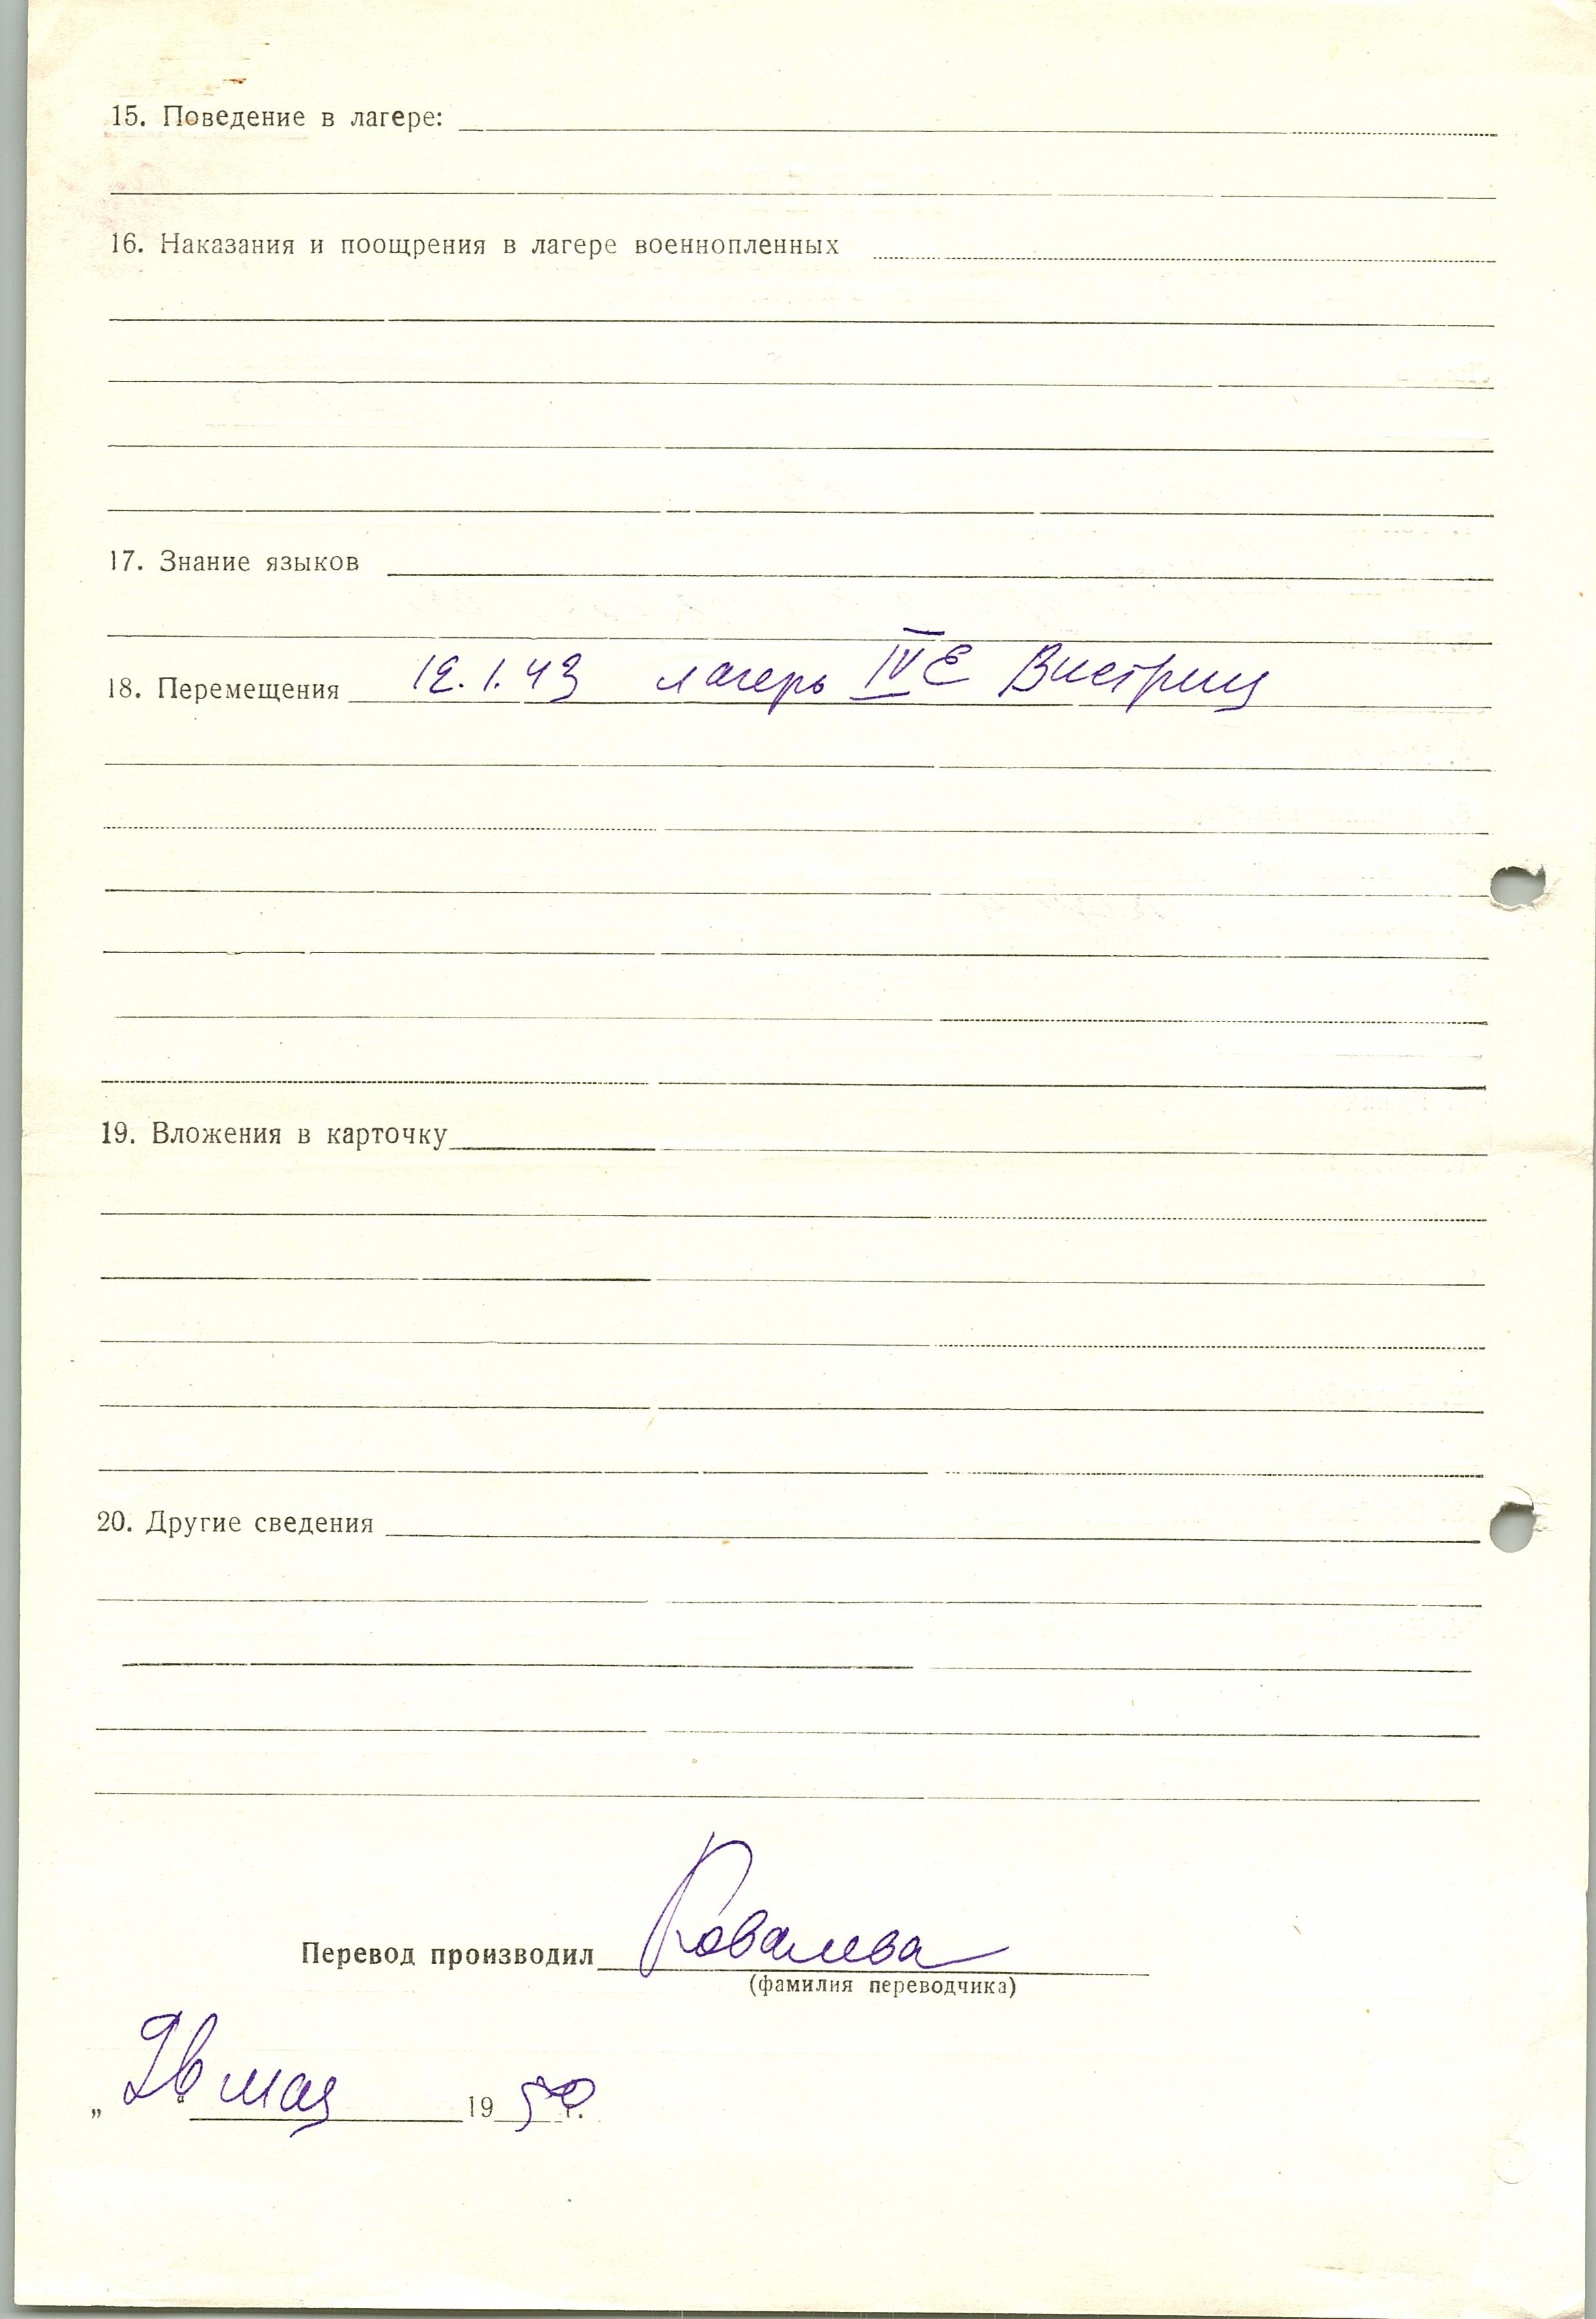 15. Поведение в лагере:
16. Наказания и поощрения в лагере военнопленных
17. Знание языков
18. Перемещения 12.1.43 лагерь IV Е Вистриц
19. Вложения в карточку
20. Другие сведения
Перевод производил Ковалева
(фамилия переводчика)
„26“ мая 1950 г.